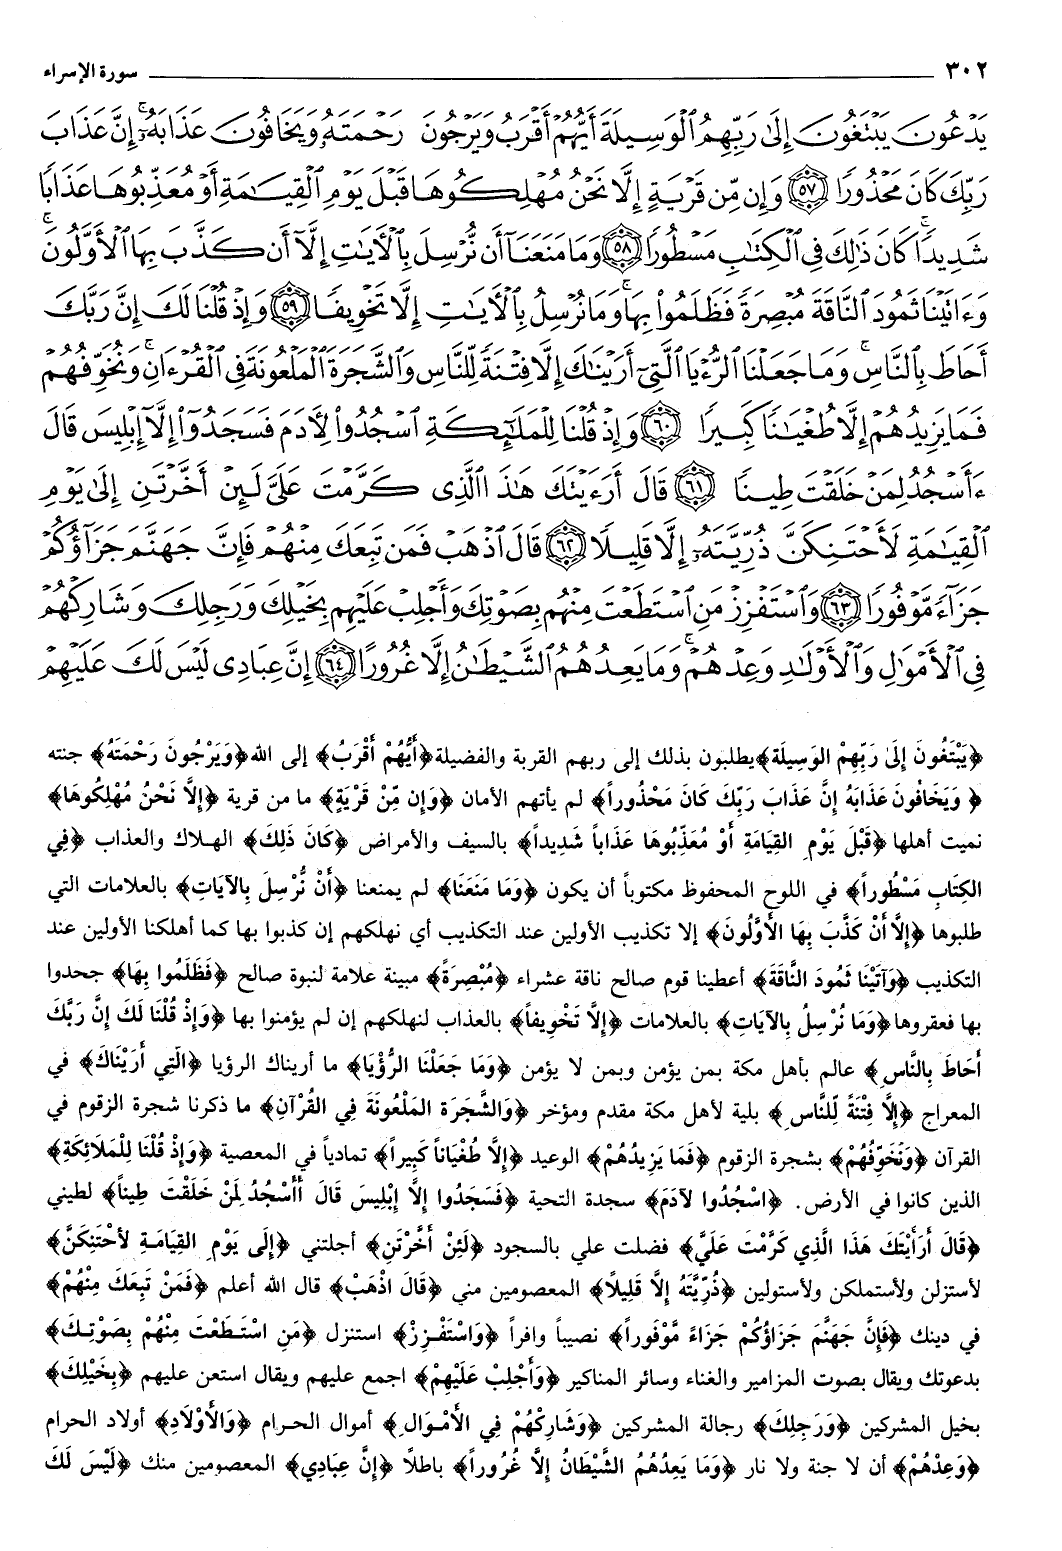 ٣٠٢ سورة الإسراء
يَدْعُونَ يَبْتَغُونَ إِلَىٰ رَبِّهِمُ ٱلْوَسِيلَةَ أَيُّهُمْ أَقْرَبُ وَيَرْجُونَ رَحْمَتَهُۥ وَيَخَافُونَ عَذَابَهُۥٓ ۚ إِنَّ عَذَابَ
رَبِّكَ كَانَ مَحْذُورًا ﴿٥٧﴾ وَإِن مِّن قَرْيَةٍ إِلَّا نَحْنُ مُهْلِكُوهَا قَبْلَ يَوْمِ ٱلْقِيَـٰمَةِ أَوْ مُعَذِّبُوهَا عَذَابًا
شَدِيدًا ۚ كَانَ ذَٰلِكَ فِى ٱلْكِتَـٰبِ مَسْطُورًا ﴿٥٨﴾ وَمَا مَنَعَنَآ أَن نُّرْسِلَ بِٱلْـَٔايَـٰتِ إِلَّآ أَن كَذَّبَ بِهَا ٱلْأَوَّلُونَ ۚ
وَءَاتَيْنَا ثَمُودَ ٱلنَّاقَةَ مُبْصِرَةً فَظَلَمُوا۟ بِهَا ۚ وَمَا نُرْسِلُ بِٱلْـَٔايَـٰتِ إِلَّا تَخْوِيفًا ﴿٥٩﴾ وَإِذْ قُلْنَا لَكَ إِنَّ رَبَّكَ
أَحَاطَ بِٱلنَّاسِ ۚ وَمَا جَعَلْنَا ٱلرُّءْيَا ٱلَّتِىٓ أَرَيْنَـٰكَ إِلَّا فِتْنَةً لِّلنَّاسِ وَٱلشَّجَرَةَ ٱلْمَلْعُونَةَ فِى ٱلْقُرْءَانِ ۚ وَنُخَوِّفُهُمْ
فَمَا يَزِيدُهُمْ إِلَّا طُغْيَـٰنًا كَبِيرًا ﴿٦٠﴾ وَإِذْ قُلْنَا لِلْمَلَـٰٓئِكَةِ ٱسْجُدُوا۟ لِـَٔادَمَ فَسَجَدُوٓا۟ إِلَّآ إِبْلِيسَ قَالَ
ءَأَسْجُدُ لِمَنْ خَلَقْتَ طِينًا ﴿٦١﴾ قَالَ أَرَءَيْتَكَ هَـٰذَا ٱلَّذِى كَرَّمْتَ عَلَىَّ لَئِنْ أَخَّرْتَنِ إِلَىٰ يَوْمِ
ٱلْقِيَـٰمَةِ لَأَحْتَنِكَنَّ ذُرِّيَّتَهُۥٓ إِلَّا قَلِيلًا ﴿٦٢﴾ قَالَ ٱذْهَبْ فَمَن تَبِعَكَ مِنْهُمْ فَإِنَّ جَهَنَّمَ جَزَآؤُكُمْ
جَزَآءً مَّوْفُورًا ﴿٦٣﴾ وَٱسْتَفْزِزْ مَنِ ٱسْتَطَعْتَ مِنْهُم بِصَوْتِكَ وَأَجْلِبْ عَلَيْهِم بِخَيْلِكَ وَرَجِلِكَ وَشَارِكْهُمْ
فِى ٱلْأَمْوَٰلِ وَٱلْأَوْلَـٰدِ وَعِدْهُمْ ۚ وَمَا يَعِدُهُمُ ٱلشَّيْطَـٰنُ إِلَّا غُرُورًا ﴿٦٤﴾ إِنَّ عِبَادِى لَيْسَ لَكَ عَلَيْهِمْ
﴿يَبْتَغُونَ إِلَىٰ رَبِّهِمُ الوَسِيلَةَ﴾ يطلبون بذلك إلى ربهم القربة والفضيلة ﴿أَيُّهُمْ أَقْرَبُ﴾ إلى الله ﴿وَيَرْجُونَ رَحْمَتَهُ﴾ جنته
﴿وَيَخَافُونَ عَذَابَهُ إِنَّ عَذَابَ رَبِّكَ كَانَ مَحْذُوراً﴾ لم يأتهم الأمان ﴿وَإِن مِّنْ قَرْيَةٍ﴾ ما من قرية ﴿إِلَّا نَحْنُ مُهْلِكُوهَا﴾
نميت أهلها ﴿قَبْلَ يَوْمِ القِيَامَةِ أَوْ مُعَذِّبُوهَا عَذَاباً شَدِيداً﴾ بالسيف والأمراض ﴿كَانَ ذَلِكَ﴾ الهلاك والعذاب ﴿فِي
الكِتَابِ مَسْطُوراً﴾ في اللوح المحفوظ مكتوباً أن يكون ﴿وَمَا مَنَعَنَا﴾ لم يمنعنا ﴿أَنْ نُّرْسِلَ بِالآيَاتِ﴾ بالعلامات التي
طلبوها ﴿إِلَّا أَنْ كَذَّبَ بِهَا الأَوَّلُونَ﴾ إلا تكذيب الأولين عند التكذيب أي نهلكهم إن كذبوا بها كما أهلكنا الأولين عند
التكذيب ﴿وَآتَيْنَا ثَمُودَ النَّاقَةَ﴾ أعطينا قوم صالح ناقة عشراء ﴿مُبْصِرَةً﴾ مبينة علامة لنبوة صالح ﴿فَظَلَمُوا بِهَا﴾ جحدوا
بها فعقروها ﴿وَمَا نُرْسِلُ بِالآيَاتِ﴾ بالعلامات ﴿إِلَّا تَخْوِيفاً﴾ بالعذاب لنهلكهم إن لم يؤمنوا بها ﴿وَإِذْ قُلْنَا لَكَ إِنَّ رَبَّكَ
أَحَاطَ بِالنَّاسِ﴾ عالم بأهل مكة بمن يؤمن وبمن لا يؤمن ﴿وَمَا جَعَلْنَا الرُّؤْيَا﴾ ما أريناك الرؤيا ﴿الَّتِي أَرَيْنَاكَ﴾ في
المعراج ﴿إِلَّا فِتْنَةً لِّلنَّاسِ﴾ بلية لأهل مكة مقدم ومؤخر ﴿وَالشَّجَرَةَ المَلْعُونَةَ فِي القُرْآنِ﴾ ما ذكرنا شجرة الزقوم في
القرآن ﴿وَنُخَوِّفُهُمْ﴾ بشجرة الزقوم ﴿فَمَا يَزِيدُهُمْ﴾ الوعيد ﴿إِلَّا طُغْيَاناً كَبِيراً﴾ تمادياً في المعصية ﴿وَإِذْ قُلْنَا لِلْمَلَائِكَةِ﴾
الذين كانوا في الأرض. ﴿اسْجُدُوا لآدَمَ﴾ سجدة التحية ﴿فَسَجَدُوا إِلَّا إِبْلِيسَ قَالَ أَأَسْجُدُ لِمَنْ خَلَقْتَ طِيناً﴾ لطيني
﴿قَالَ أَرَأَيْتَكَ هَذَا الَّذِي كَرَّمْتَ عَلَيَّ﴾ فضلت علي بالسجود ﴿لَئِنْ أَخَّرْتَنِ﴾ أجلتني ﴿إِلَى يَوْمِ القِيَامَةِ لأَحْتَنِكَنَّ﴾
لأستزلن ولأستملكن ولأستولين ﴿ذُرِّيَّتَهُ إِلَّا قَلِيلًا﴾ المعصومين مني ﴿قَالَ اذْهَبْ﴾ قال الله أعلم ﴿فَمَنْ تَبِعَكَ مِنْهُمْ﴾
في دينك ﴿فَإِنَّ جَهَنَّمَ جَزَاؤُكُمْ جَزَاءً مَّوْفُوراً﴾ نصيباً وافراً ﴿وَاسْتَفْزِزْ﴾ استنزل ﴿مَنِ اسْتَطَعْتَ مِنْهُمْ بِصَوْتِكَ﴾
بدعوتك ويقال بصوت المزامير والغناء وسائر المناكير ﴿وَأَجْلِبْ عَلَيْهِمْ﴾ اجمع عليهم ويقال استعن عليهم ﴿بِخَيْلِكَ﴾
بخيل المشركين ﴿وَرَجِلِكَ﴾ رجالة المشركين ﴿وَشَارِكْهُمْ فِي الأَمْوَالِ﴾ أموال الحرام ﴿وَالأَوْلَادِ﴾ أولاد الحرام
﴿وَعِدْهُمْ﴾ أن لا جنة ولا نار ﴿وَمَا يَعِدُهُمُ الشَّيْطَانُ إِلَّا غُرُوراً﴾ باطلاً ﴿إِنَّ عِبَادِي﴾ المعصومين منك ﴿لَيْسَ لَكَ